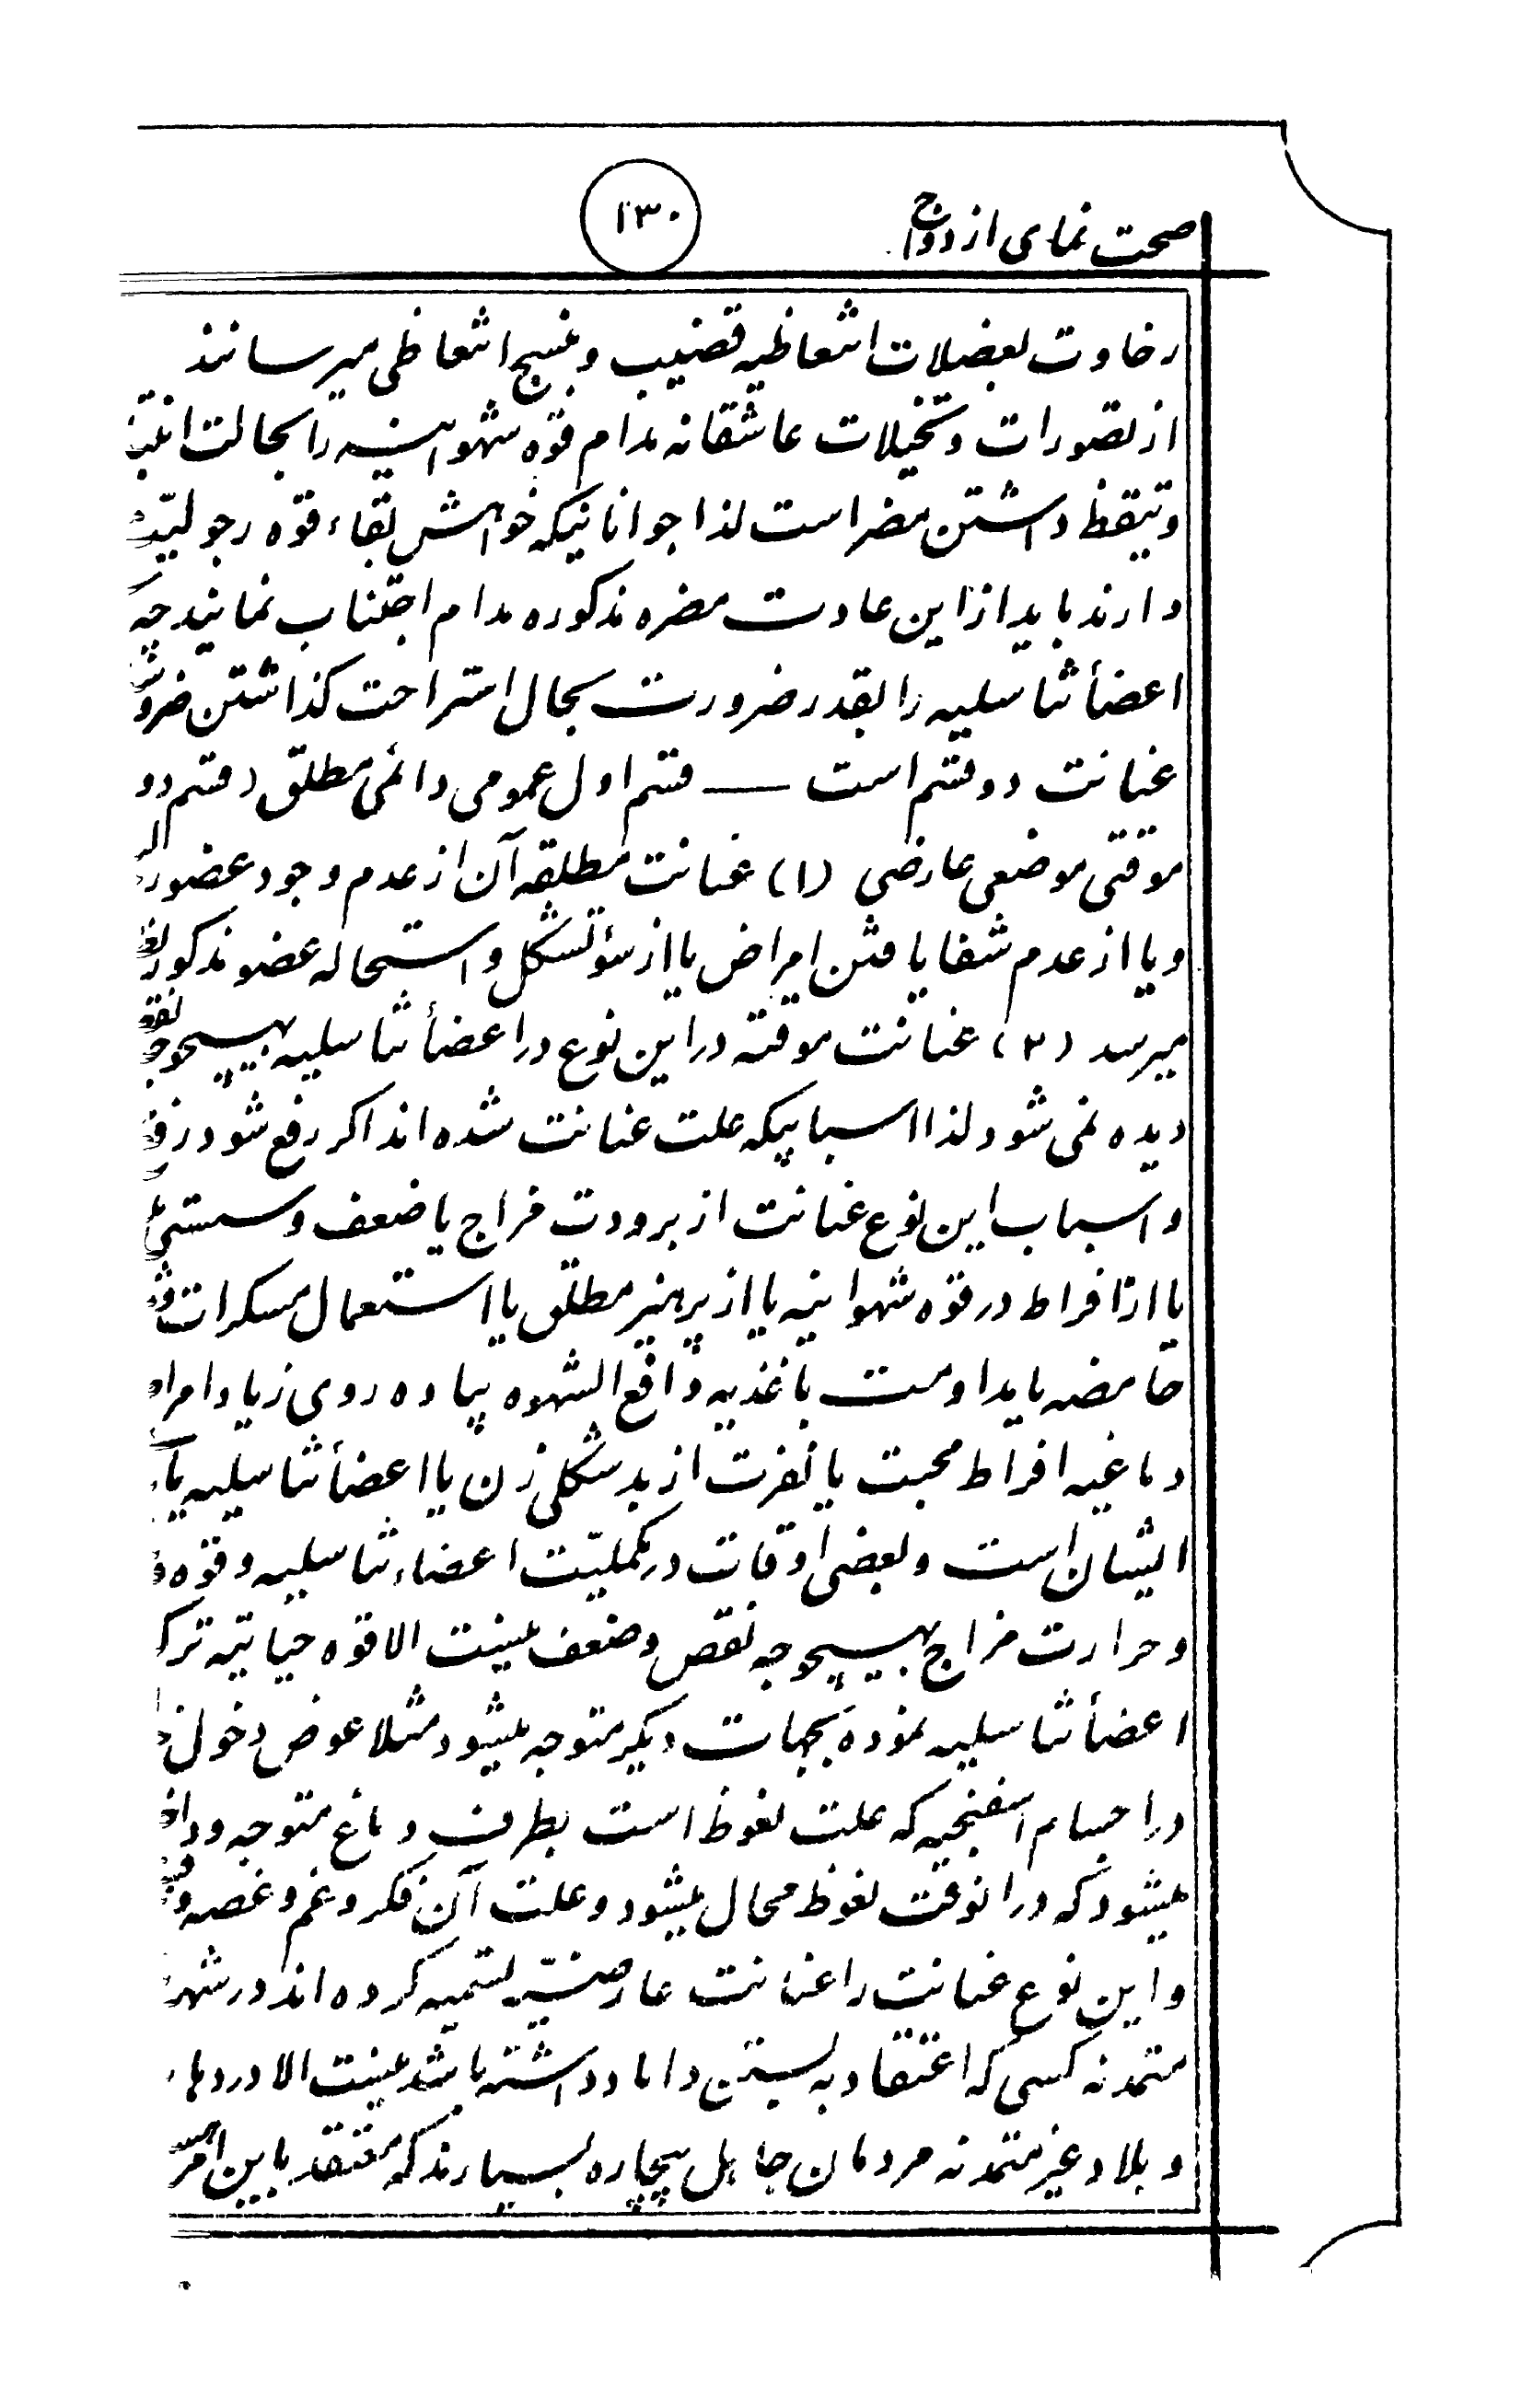 صحت نمای ازدواج
۱۳۰
رخاوت بعضلات اشعاظیه قضیب و نسج اشعاظی میرسانند
از تصورات و تخیلات عاشقانه مدام قوه شهوانیه را بحالت
و تیقظ داشتن مضر است لذا جوانانیکه خواهش بقاء قوه رجولیت
دارند باید از این عادت مضره مذکوره مدام اجتناب نمایند چه
اعضأ تناسلیه را بقدر ضرورت بحال استراحت گذاشتن
عنانت دو قسم است — قسم اول عمومی دائمی مطلق (قسم دو
موقتی موضعی عارضی (۱) عنانت مطلقه آن از عدم وجود عضو
و یا از عدم شفا یافتن امراض یا از سؤ تشکل و استحاله عضو مذکور
میرسد (۲) عنانت موقته در این نوع در اعضأ تناسلیه بهیچوجه
دیده نمی شود لذا اسبابیکه علت عنانت شده اند اکر رفع شود
و اسباب این نوع عنانت از برودت مزاج یا ضعف و سستی
یا از افراط در قوه شهوانیه یا از پرهیز مطلق یا استعمال مسکرات
حامضه یا مداومت باغذیه دافع الشهوه پیاده روی زیاد
دماغیه افراط محبت یا نفرت از بد شکلی زن یا اعضأ تناسلیه
ایشان است و بعضی اوقات در مکملیّت اعضاء تناسلیه و قوه
و حرارت مزاج بهیچوجه نقص و ضعف نیست الا قوه حیاتیه
اعضأ تناسلیه نموده بجهات دیگر متوجه میشود مثلا عوض دخول
در اجسام اسفنجیه که علت نغوظ است بطرف دماغ متوجه
میشود که در انوقت نغوظ محال میشود و علت آن فکر و غم و غصه
و این نوع عنانت را عنانت عارضیّه تسمیه کرده اند در
متمدنه کسی که اعتقاد به بستن داماد داشته باشد نیست الا در
و بلاد غیر متمدنه مردمان جاهل بیچاره بسیارند که معتقد باین امر